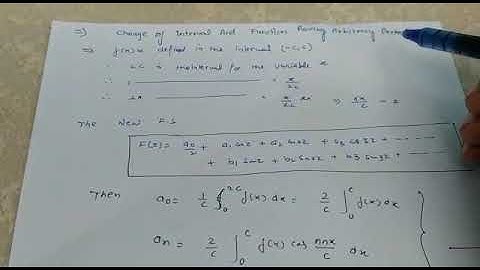 ⇒) Change of Interval And Function Having Arbitrary
⇒ f(x) is defined in the interval (-c, c)
∴ 2c is the interval for the variable x
∴ 1 ———— = x/2c
∴ 2π ———— = x/2c 2π ⇒ πx/c = z
The New F.S
F(z) = a0/2 + a1 cos z + a2 cos 2z + a3 cos 3z + - - - - -
+ b1 sin z + b2 sin 2z + b3 sin 3z + - - - - -
Then a0 = 1/c ∫0^2c f(x) dx = 2/c ∫0^c f(x) dx
an = 2/c ∫0^c f(x) cos nπx/c dx